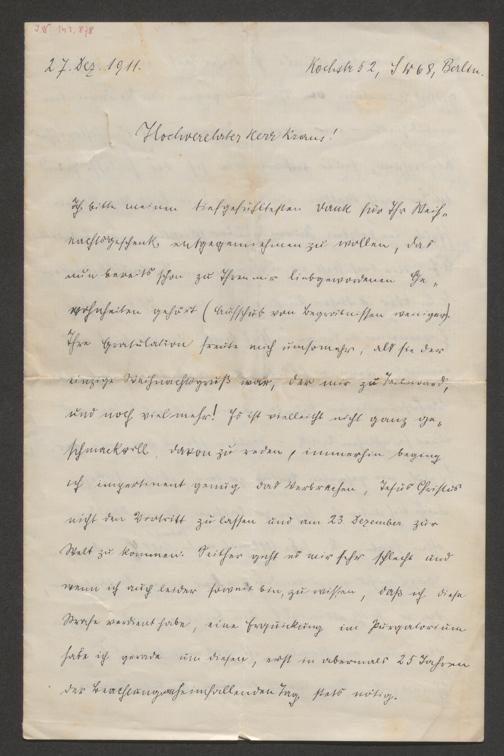 IN 143.878
27. Dez. 1911. Kochstr 52, SW 68, Berlin.
Hochverehrter Herr Kraus!
Ich bitte meinen tiefgefühltesten Dank für Ihr Weih-
nachtsgeschenk entgegennehmen zu wollen, das
nun bereits schon zu Ihren mir liebgewordenen Ge-
wohnheiten gehört (Aufschub von Begräbnissen weniger).
Ihre Gratulation freute mich umsomehr, als sie der
einzige Weihnachtsgruß war, der mir zu Teil ward,
und noch viel mehr! Es ist vielleicht nicht ganz ge-
schmackvoll, davon zu reden, immerhin beging
ich impertinent genug das Verbrechen, Jesus Christus
nicht den Vortritt zu lassen und am 23. Dezember zur
Welt zu kommen. Seither geht es mir sehr schlecht und
wenn ich auch leider soweit bin, zu wissen, daß ich diese
Strafe verdient habe, eine Erquickung im Purgatorium
habe ich gerade um diesen, erst in abermals 25 Jahren
der Beachtung anheimfallenden Tag stets nötig.